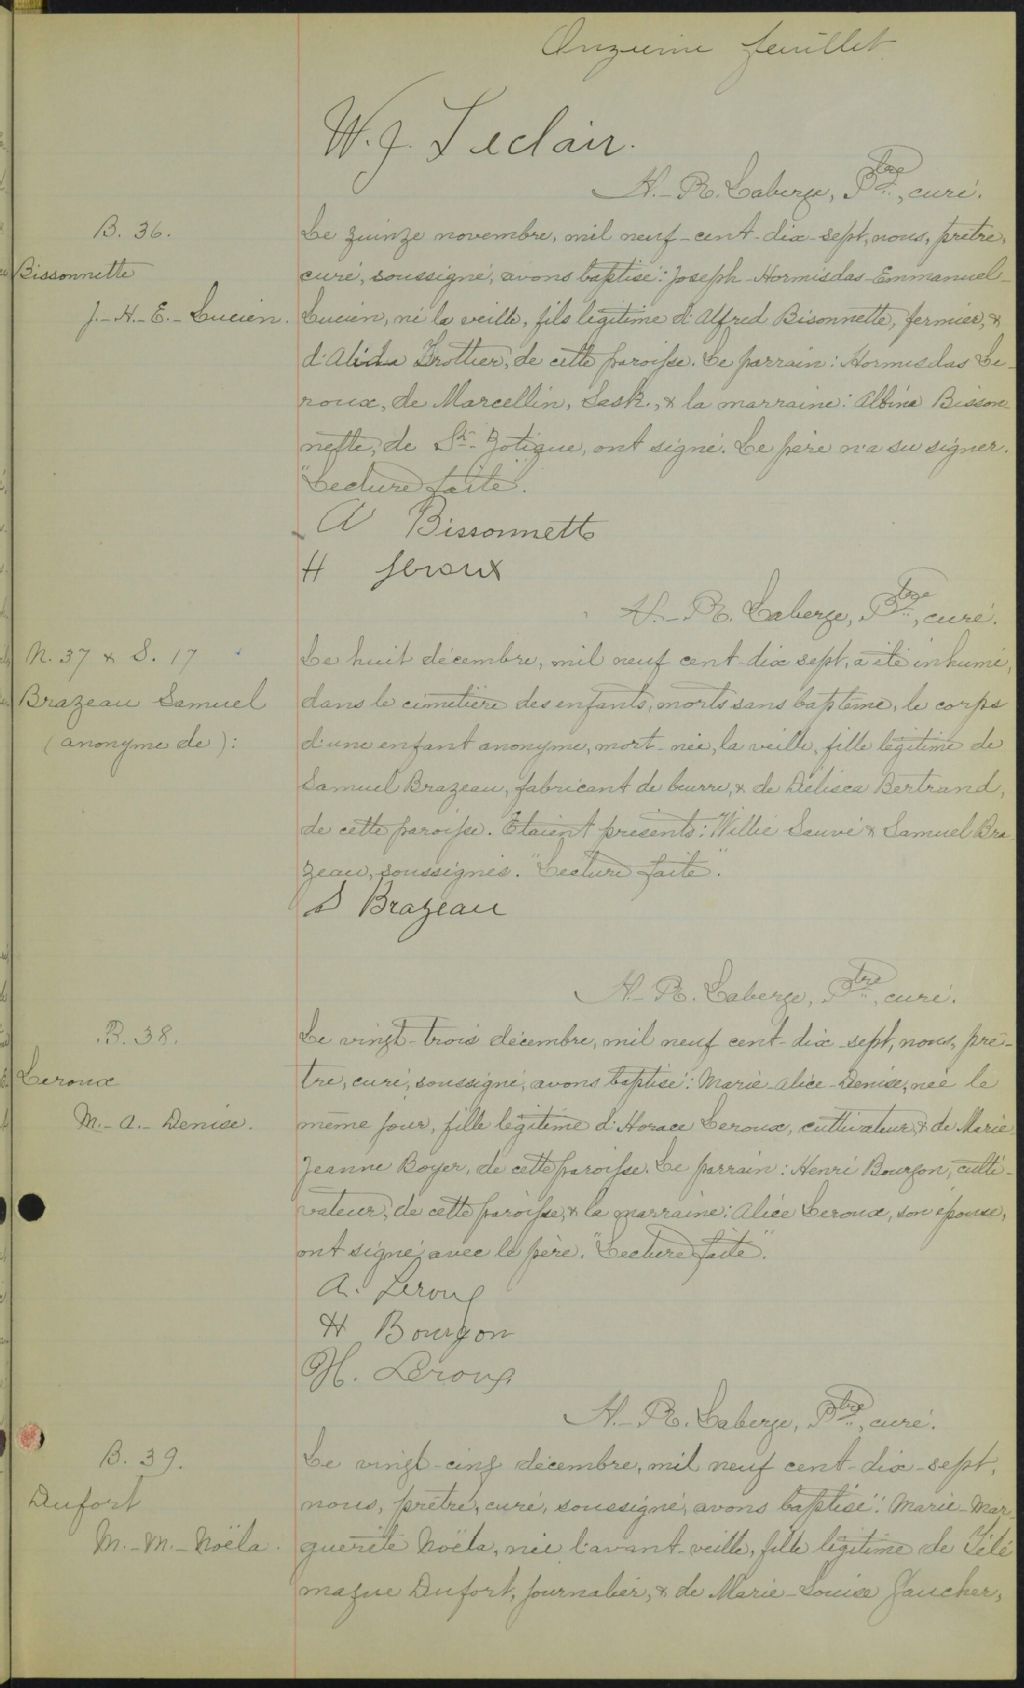 Onzième feuillet
W. J. Leclair.
H.-R. Laberge, Ptre, curé.
B. 36.
Bissonnette
J.-H.-E.-Lucien.
Le quinze novembre, mil neuf-cent-dix-sept, nous, prêtre,
curé, soussigné, avons baptisé: Joseph-Hormisdas-Emmanuel-
Lucien, né la veille, fils légitime d'Alfred Bisonnette, fermier, &
d'Alida Trottier, de cette paroisse. Le parrain: Hormisdas Le-
roux, de Marcellin, Sask., & la marraine: Albina Bisson
nette, de St-Zotique, ont signé. Le père n'a su signer.
"Lecture faite".
A Bissonnette
H Leroux
H.-R. Laberge, Ptre, curé.
N. 37 & S. 17
Brazeau Samuel
(anonyme de):
Le huit décembre, mil neuf cent-dix sept, a été inhumé,
dans le cimetière des enfants, morts sans baptême, le corps
d'une enfant anonyme, mort-née, la veille, fille légitime de
Samuel Brazeau, fabricant de beurre, & de Délisca Bertrand,
de cette paroisse. Etaient présents: Willie Sauvé & Samuel Bra
zeau, soussignés. "Lecture faite".
S Brazeau
H-R. Laberge, Ptre, curé.
B. 38.
Leroux
M.-A.-Denise.
Le vingt-trois décembre, mil neuf cent-dix-sept, nous, prê-
tre, curé, soussigné, avons baptisé: Marie-Alice-Denise, née le
même jour, fille légitime d'Horace Leroux, cultivateur, & de Marie-
Jeanne Boyer, de cette paroisse. Le parrain: Henri Bourgon, culti-
vateur, de cette paroisse, & la marraine: Alice Leroux, son épouse,
ont signé avec le père. "Lecture faite".
A. Leroux
H Bourgon
H. Leroux
H.-R. Laberge, Ptre, curé.
B. 39.
Dufort
M.-M.-Noëla.
Le vingt-cinq décembre, mil neuf cent-dix-sept,
nous, prêtre, curé, soussigné, avons baptisé: Marie-Mar-
guerite Noëla, née l'avant-veille, fille légitime de Télé
maque Dufort, journalier, & de Marie-Louise Faucher,